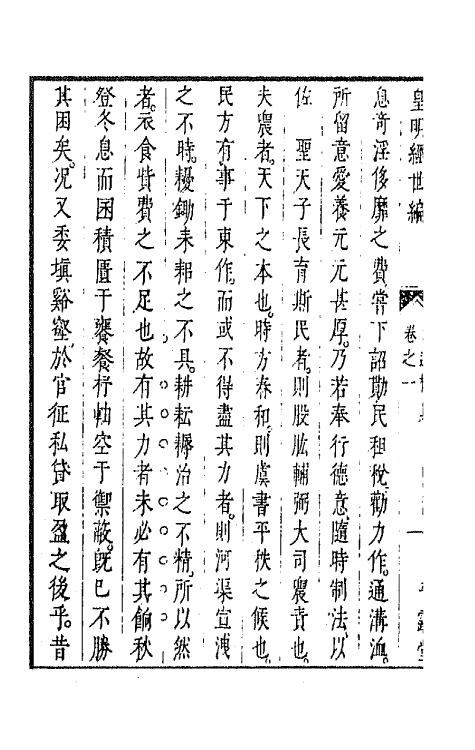 皇明經世編
卷之一
息奇淫侈靡之費嘗下詔勸民租稅勸力作通溝洫
所留意愛養元元甚厚乃若奉行德意隨時制法以
佐　聖天子長育斯民者則股肱輔弼大司農責也
夫農者天下之本也時方春和則虞書平秩之候也
民方有事于東作而或不得盡其力者則河渠宣洩
之不時耰鋤耒耜之不具耕耘耨治之不精所以然
者衣食貲費之不足也故有其力者未必有其餉秋
登冬息而困積匱于饔餐杼軸空于禦蔽旣已不勝
其困矣况又委塡谿壑於官征私貸取盈之後乎昔